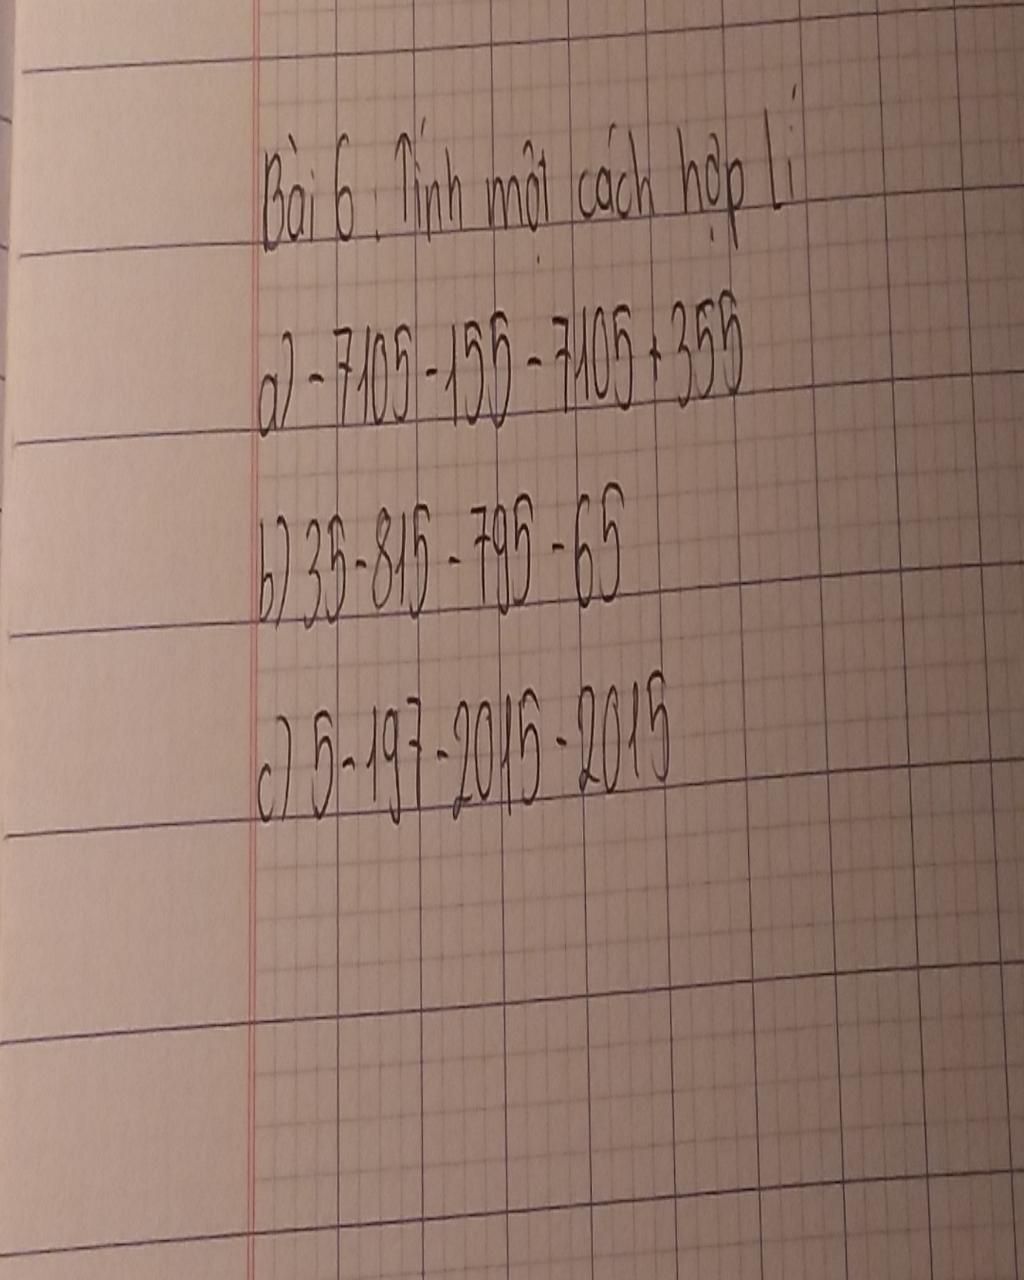 Bài 6. Tính một cách hợp lí
a) -7105 - 155 - 7105 + 355
b) 35 - 815 - 795 - 65
c) 5 - 197 - 2015 - 2015